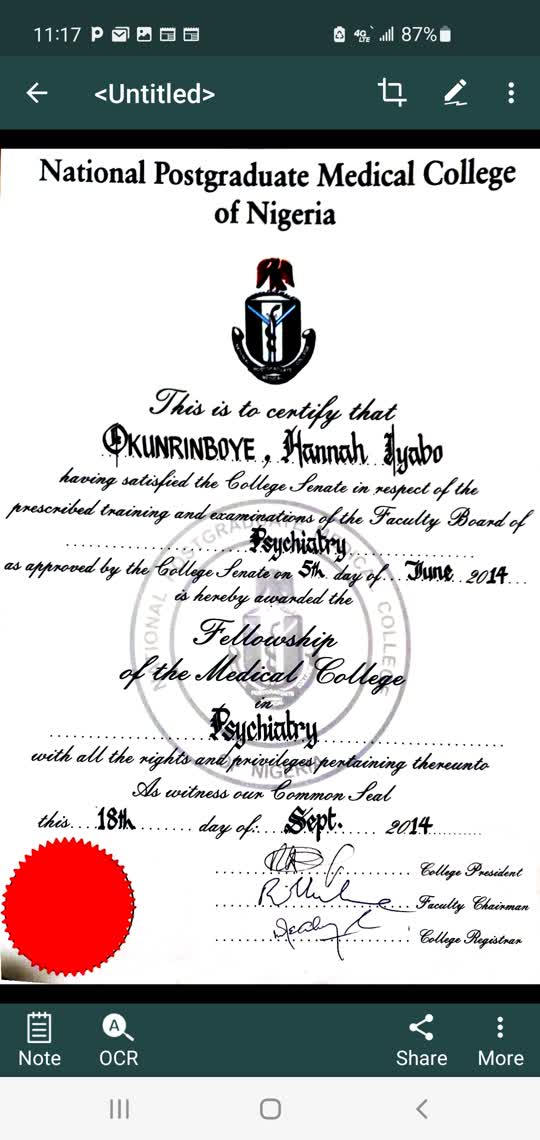 11:17 P 4G LTE 87%
<Untitled>
National Postgraduate Medical College
of Nigeria
This is to certify that
OKUNRINBOYE, Hannah Iyabo
having satisfied the College Senate in respect of the
prescribed training and examinations of the Faculty Board of
Psychiatry
as approved by the College Senate on 5th day of June 2014
is hereby awarded the
Fellowship
of the Medical College
in
Psychiatry
with all the rights and privileges pertaining thereunto
As witness our Common Seal
this 18th day of: Sept. 2014
College President
Faculty Chairman
College Registrar
NATIONAL POSTGRADUATE MEDICAL COLLEGE
OF NIGERIA
Note OCR Share More